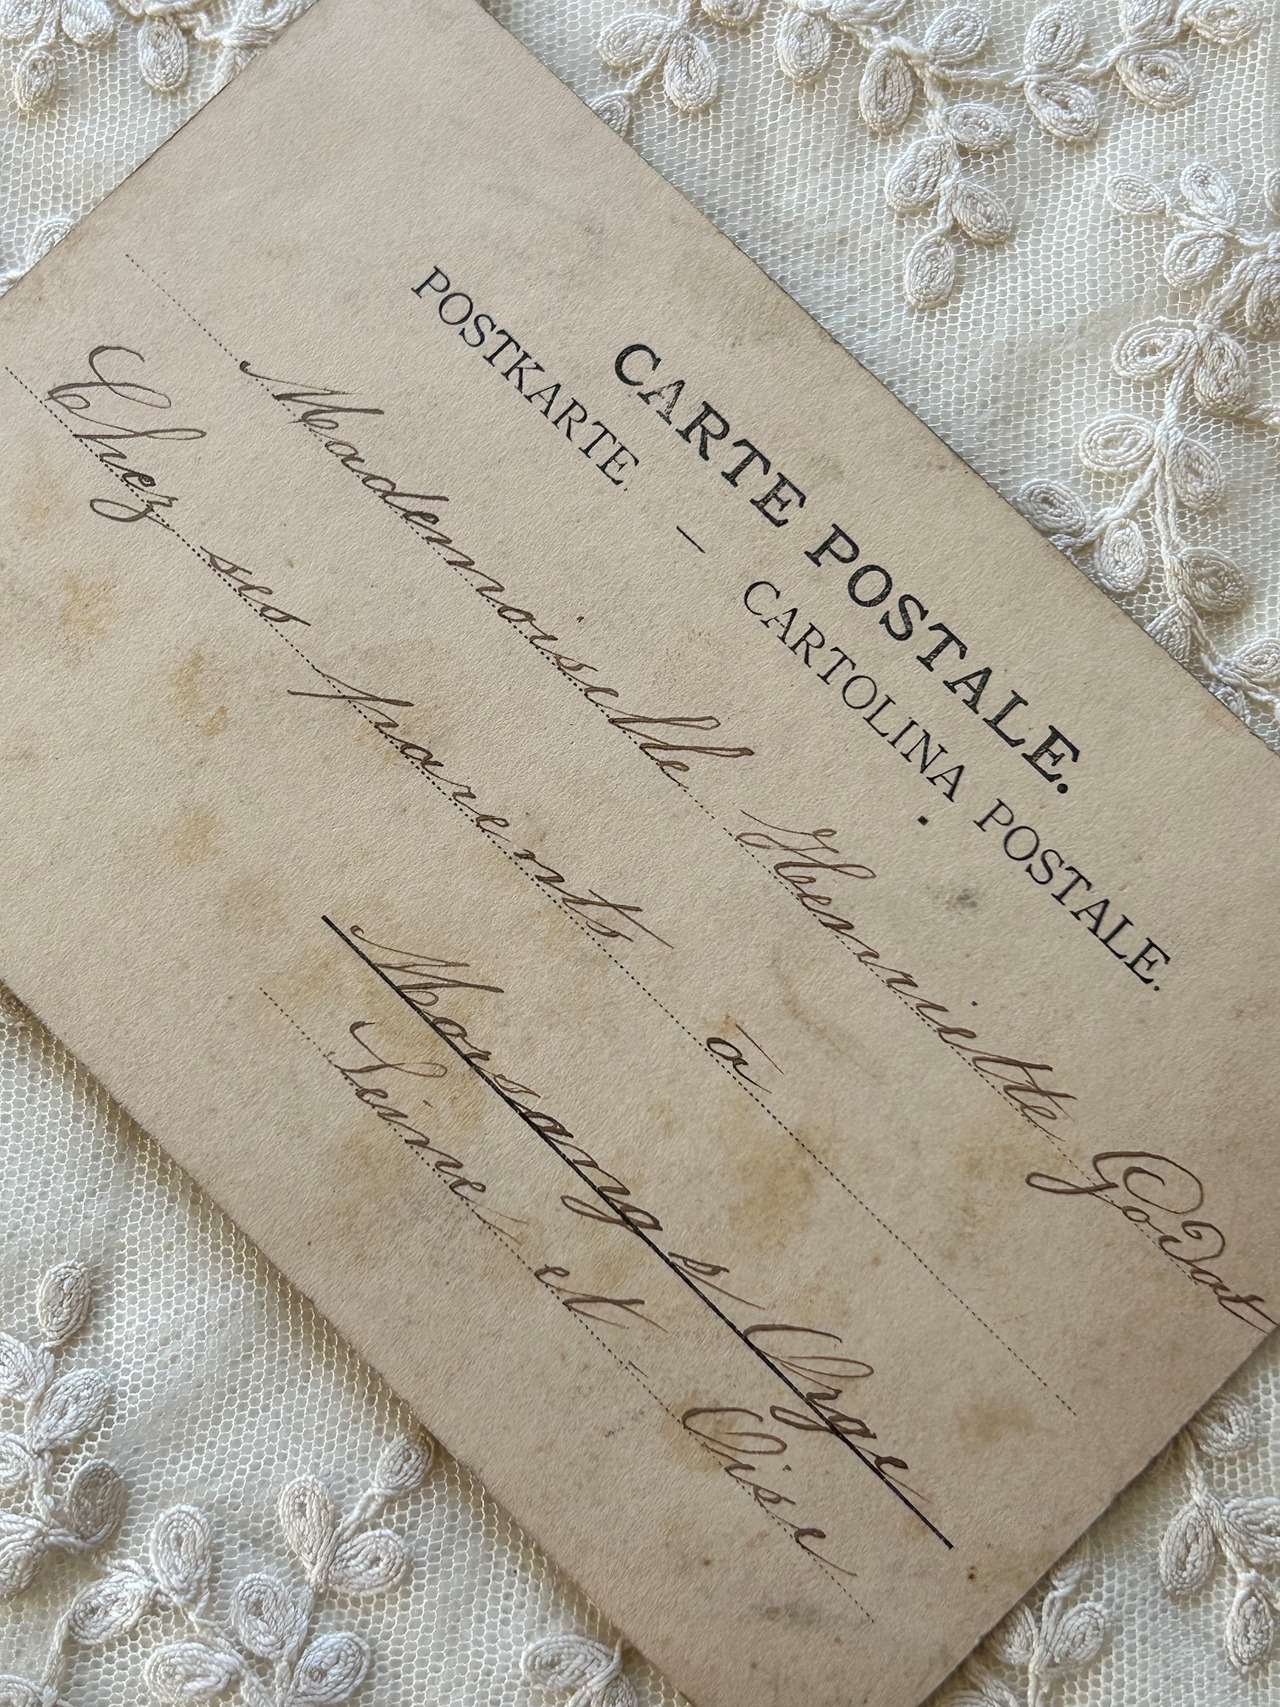 CARTE POSTALE.
POSTKARTE. — CARTOLINA POSTALE.
Mademoiselle Henriette Godat
Chez ses parents à
Morsang s/ Orge
Seine et Oise